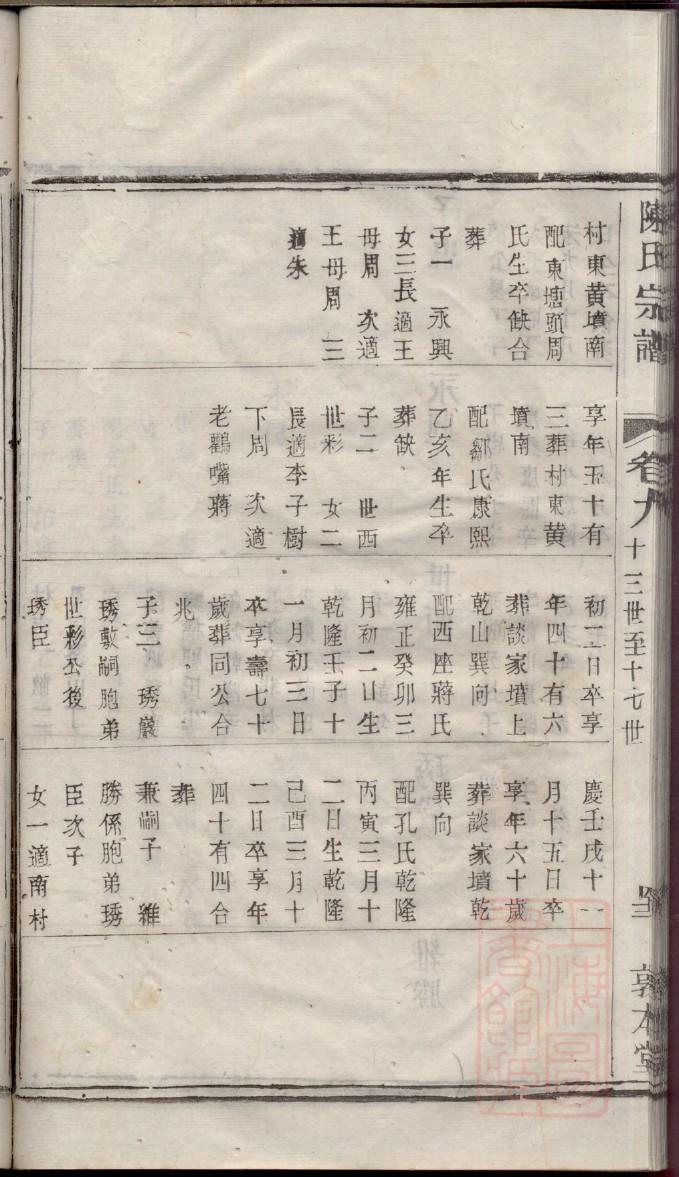 陳氏宗譜
卷九
十三世至十七世
敦本堂
村東黃墳南
配東塘頭周
氏生卒缺合
葬
子一 永興
女三長適王
母周 次適
王母周 三
適朱
享年五十有
三葬村東黃
墳南
配鄒氏康熙
乙亥年生卒
葬缺
子二 世西
世彩 女二
長適李子樹
下周 次適
老鸛嘴蔣
初二日卒享
年四十有六
葬談家墳上
乾山巽向
配西座蔣氏
雍正癸卯三
月初二日生
乾隆壬子十
一月初三日
卒享壽七十
歲葬同公合
兆
子三 琇嚴
琇敷嗣胞弟
世彩公後
琇臣
慶壬戌十一
月十五日卒
享年六十歲
葬談家墳乾
巽向
配孔氏乾隆
丙寅三月十
二日生乾隆
己酉三月十
二日卒享年
四十有四合
葬
兼嗣子 維
勝係胞弟琇
臣次子
女一適南村
上海圖書館藏